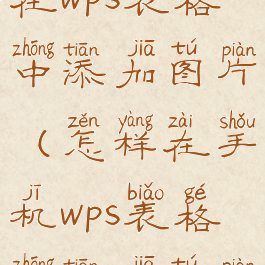 在WPS表格
zhōng tiān jiā tú piàn
中添加图片
zěn yàng zài shǒu
（怎样在手
jī biǎo gé
机WPS表格
zhōng tiān jiā tú piàn